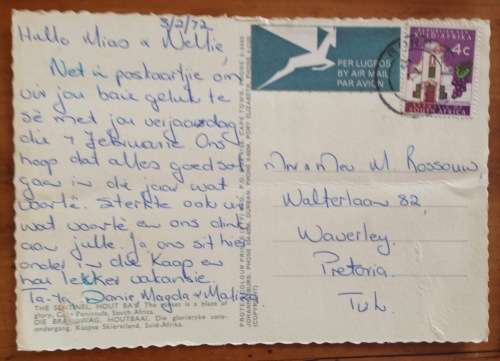 3/2/72
Hallo Mias & Nellie,
Net 'n poskaartjie om
vir jou baie geluk te
sê met jou verjaarsdag
die 7 Februarie. Ons
hoop dat alles goed sal
gaan in die jaar wat
voorlê. Sterkte ook vir
wat voorlê en ons dink
aan julle. Ja ons sit hier
onder in die Kaap en
hou lekker vakansie
Ta-ta Danie Magda &
THE SENTINEL, HOUT BAY. The sunset is a blaze of
glory, Cape Peninsula, South Africa.
DIE BRANDWAG, HOUTBAAI. Die glorieryke sons-
ondergang, Kaapse Skiereiland, Suid-Afrika.
PER LUGPOS
BY AIR MAIL
PAR AVION
4c
Mnr & Mev M. Rossouw,
Walterlaan 82,
Waverley.
Pretoria.
Tvl.